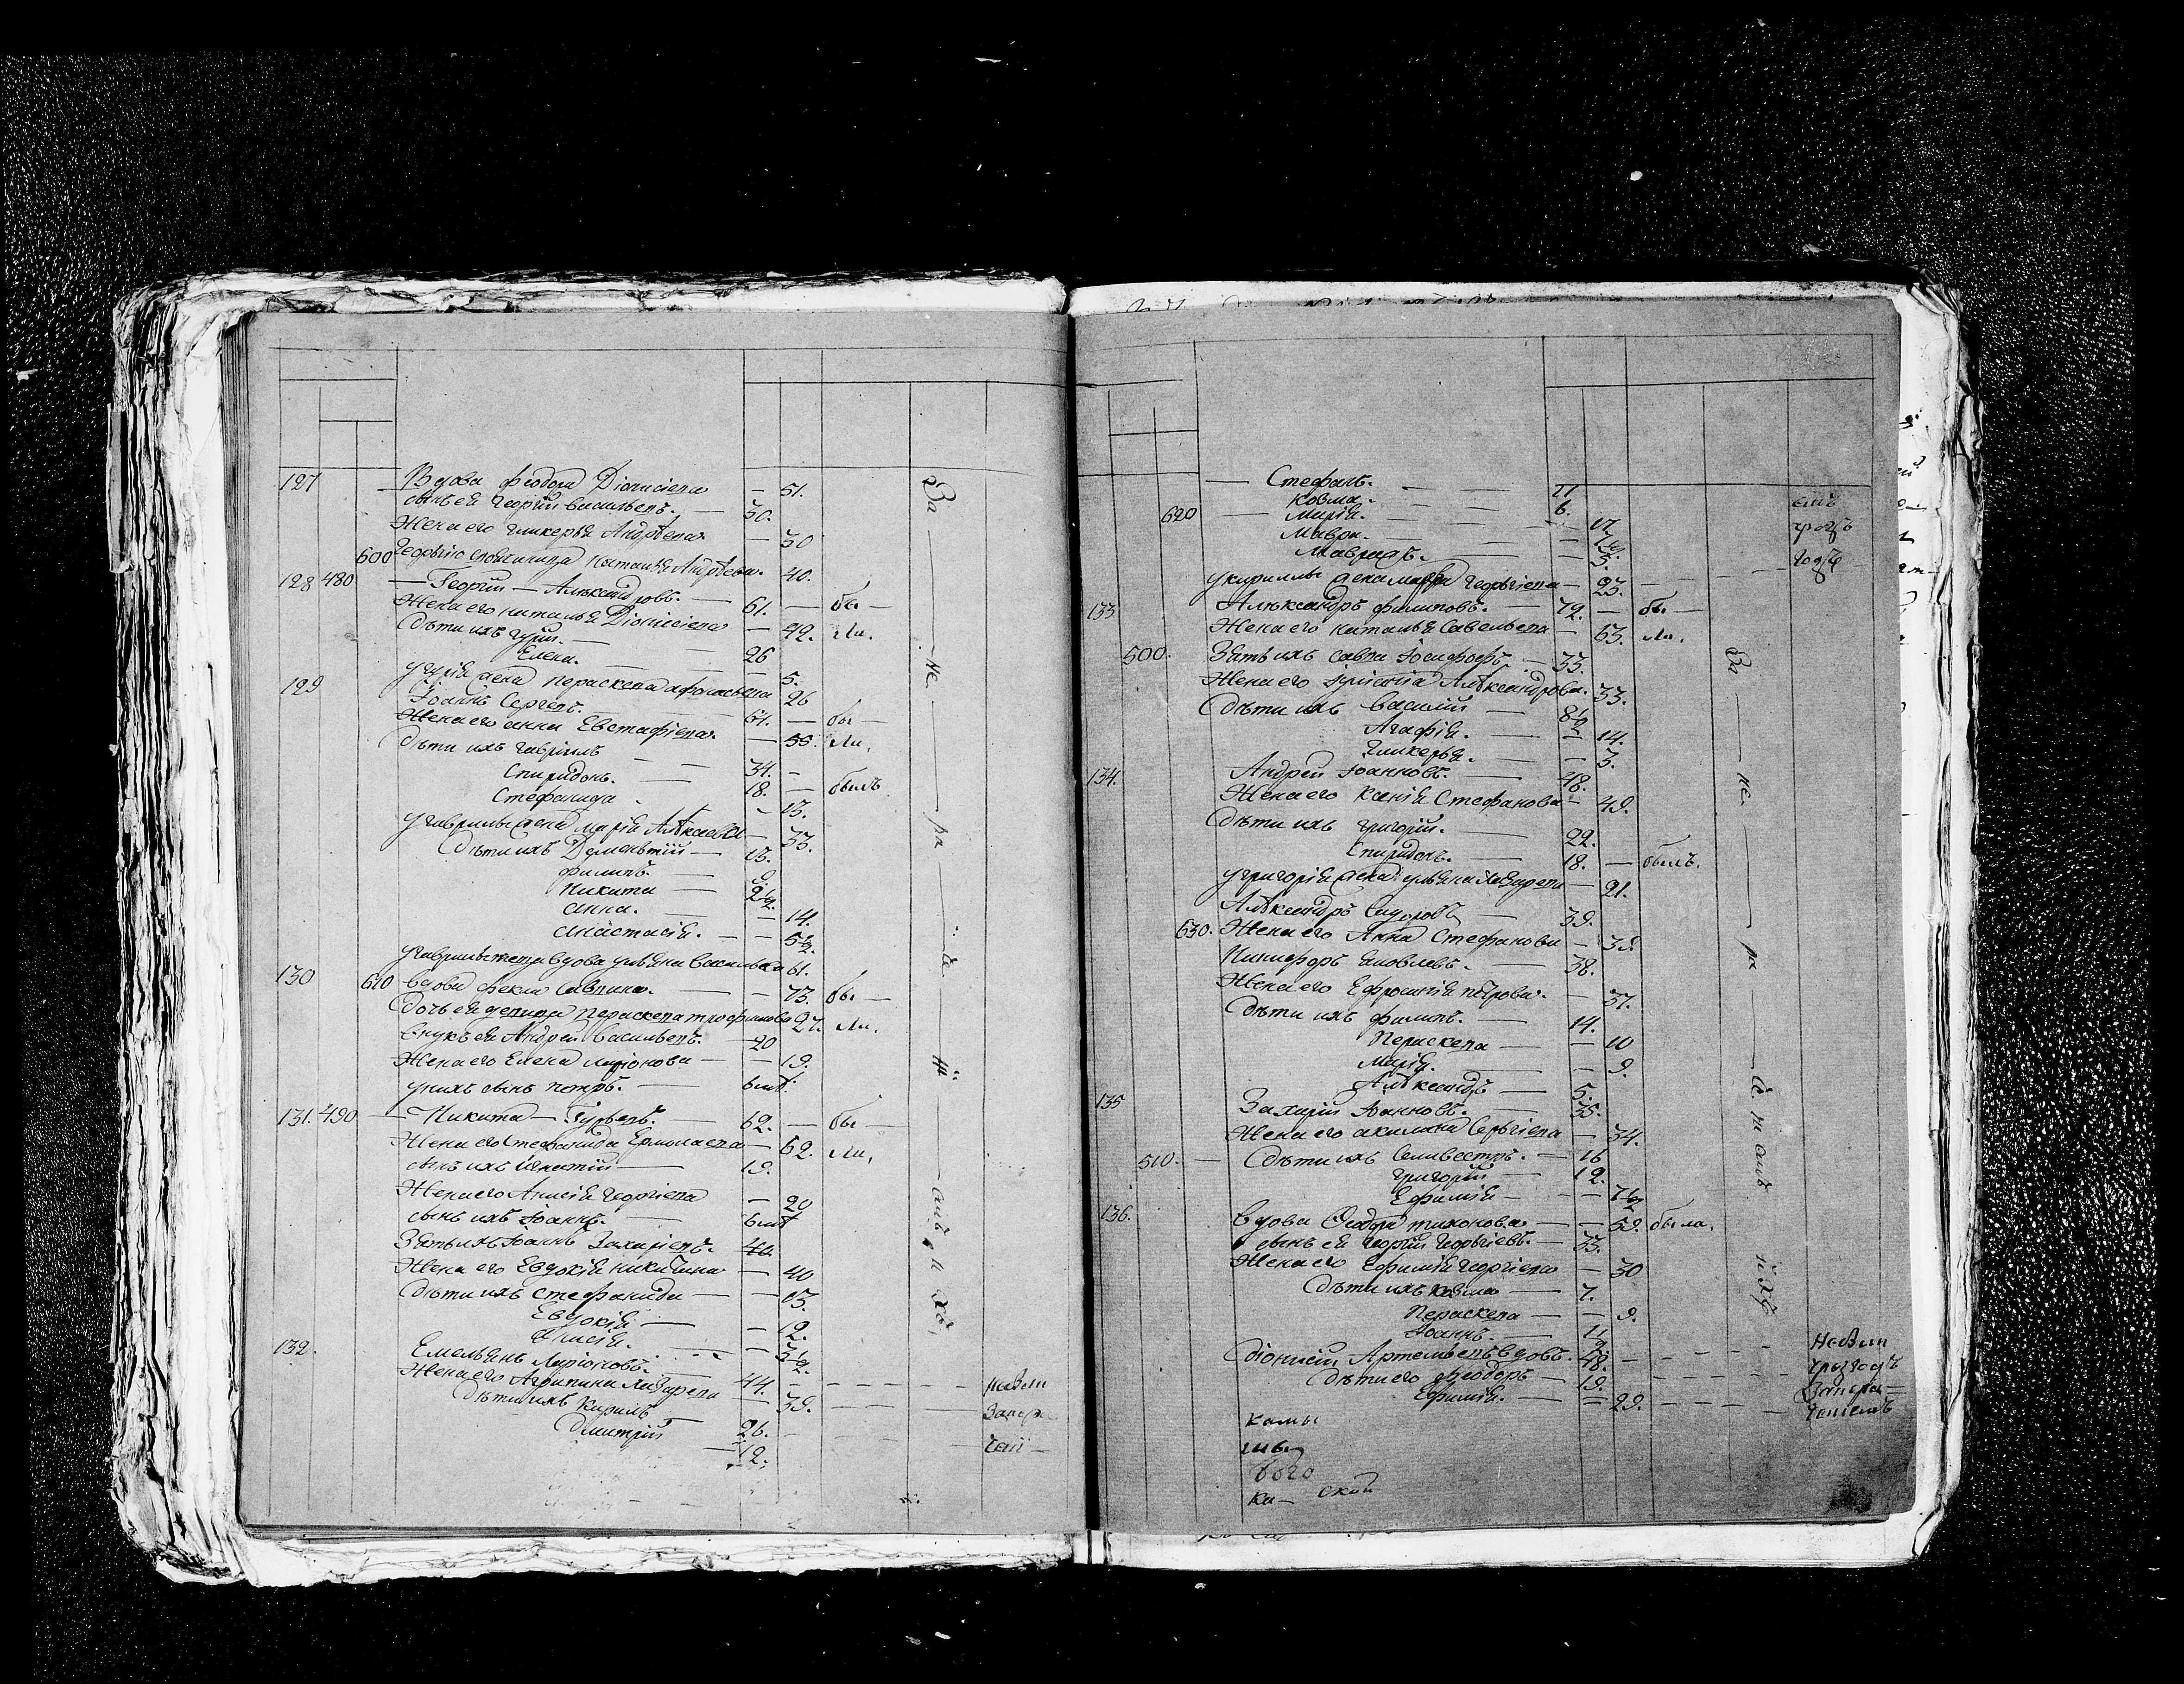 127 Вдова Феодора Дионисіева — 51.
сынъ ея Георгій Васильевъ. — 30.
Жена его Гликерья Андрѣева — 30
600 Георгію своячиница Наталья Андрѣева. 40.
128 480 — Георгій — Александровъ. — 61. — бы —
Жена его Наталья Дионисіева — 42. ли.
Дѣти ихъ Гурій. — 26
Елена. — 5.
у Гурія жена Параскева Афонасьева 26
129 Іоаннъ Сергеевъ. — 61. — бы —
Жена его Анна Евстафіева — 55. ли.
Дѣти ихъ Гавріилъ — 34. —
Спиридонъ. — 18. — былъ
Стефанида — 13.
у Гаврилы жена Марія Алексѣева — 33.
Дѣти ихъ Дементій — 13.
Филипъ. — 9
Никита — 2½.
Анна. — 14.
Анастасія. — 5½.
у Гаврилы теща вдова Ульяна Васильева 61.
130 610 Вдова Фекла Саввина. — 73. бы —
Дочь ея девица Параскева Трофимова 27. ли.
Внукъ ея Андрей Васильевъ. — 20
Жена его Елена Ларіонова — 19.
у нихъ сынъ Петръ. — 6
131. 490 — Никита — Гурьевъ. — 62. — бы —
Жена его Стефанида Ермолаева — 62. ли.
сынъ ихъ Игнатій — 19.
Жена его Анисія Георгіева — 20
сынъ ихъ Іоаннъ. — 6
Зять ихъ Іоаннъ Захаріевъ. 40.
Жена его Евдокія Никитина — 40
Дѣти ихъ Стефанида — 13.
Евдокія — 12.
Анисія. — 3½.
132. Емельянъ Ларіоновъ. — 44. — — — — не
Жена его Агрипина Назарева — 39. — — —
Дѣти ихъ Кирилъ 26. — — —
Димитрій — 12.
За — не — ра — де — н —
— Стефанъ. — 11
Козма. — 6.
620 — Марія. — 17
Мавра. — 7½
5.
у Кирилы жена Марфа Георгіева — 23. —
133 Александръ Филиповъ. — 79. — бы —
Жена его Наталья Савельева — 63. ли.
500. Зять ихъ Савва Іосифовъ — 33.
Жена его Іуліанія Александрова. 33.
Дѣти ихъ Василій — 8½
Агафія. — 14.
Гликерья. — 3.
134. Андрей Іоанновъ. — 48.
Жена его Ксенія Стефанова — 49.
Дѣти ихъ Григорій. — 22.
Спиридонъ. — 18. — былъ.
у Григорія жена Ульяна Назарева — 21.
Александръ Сидоровъ — 39.
630. Жена его Анна Стефанова — 39.
Никифоръ Яковлевъ. — 38.
Жена его Ефросинія Петрова. — 37.
Дѣти ихъ Филипъ. — 14.
Параскева — 10
Марія. — 9.
Александръ — 5.
135 Захарій Іоанновъ. — 35.
Жена его Акилина Сергіева — 34.
510. — Дѣти ихъ Селивестръ. — 16
Григорій — 12.
Ефимія — 7½
136. Вдова Феодора Тихонова — 59. была.
сынъ ея Георгій Георгіевъ. — 33.
Жена его Ефимія Георгіева — 30
Дѣти ихъ Козма — 7.
Параскева — 9.
Іоаннъ. — 1½
Діонисій Артемьевъ вдовъ. 48. — — —
Дѣти его Феодоръ — 19. — — — —
Ефимія. — 29. — — — —
За — не — ра —